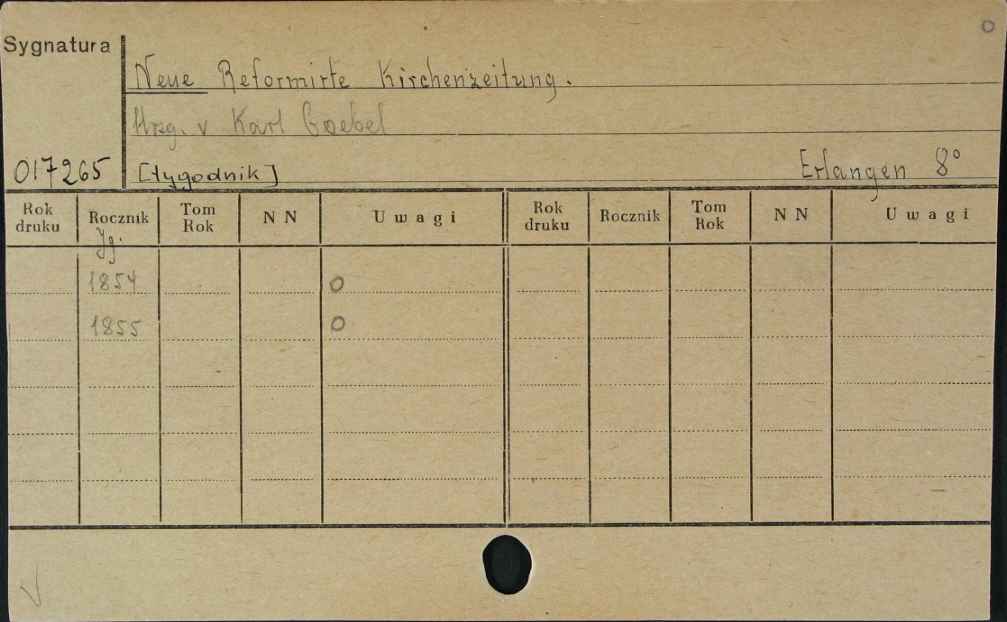 O
Sygnatura
Neue Reformirte Kirchenzeitung.
Hrsg. v Karl Goebel
017265 [tygodnik] Erlangen 8°
Rok druku Rocznik Tom Rok N N Uwagi Rok druku Rocznik Tom Rok N N Uwagi
Jg.
1854 O
1855 O